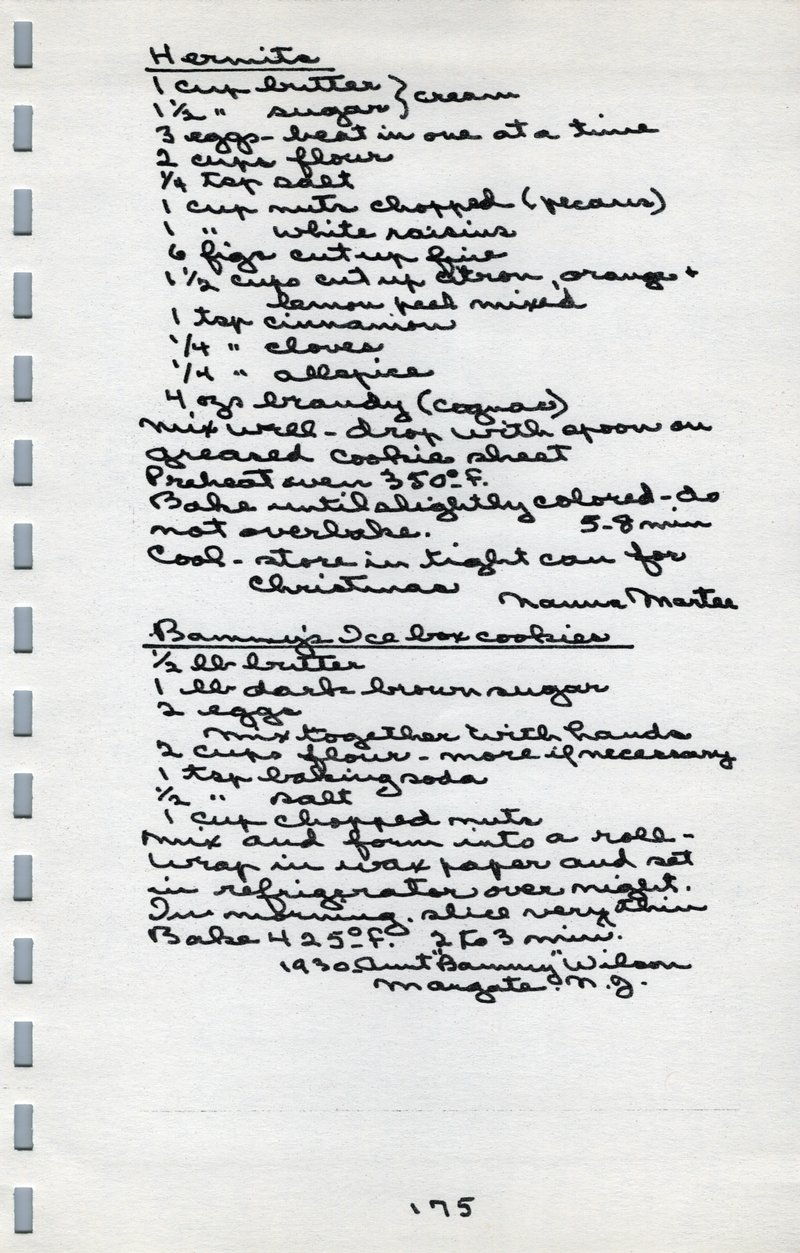 Hermits
1 cup butter } cream
1 1/2 " sugar
3 eggs - beat in one at a time
2 cups flour
1/4 tsp salt
1 cup nuts chopped (pecans)
1 " white raisins
6 figs cut up fine
1 1/2 cups cut up citron, orange +
lemon peel mixed
1 tsp cinnamon
1/4 " cloves
1/4 " allspice
4 ozs brandy (cognac)
Mix well - drop with spoon on
greased cookie sheet
Preheat oven 350° F.
Bake until slightly colored - do
not overbake. 5-8 min
Cool - store in tight can for
Christmas
Nanna Martee
Bammy's Ice box cookies
1/2 lb butter
1 lb dark brown sugar
2 eggs
Mix together with hands
2 cups flour - more if necessary
1 tsp baking soda
1/2 " salt
1 cup chopped nuts
Mix and form into a roll -
Wrap in wax paper and set
in refrigerator over night.
In morning. slice very thin
Bake 425° F. 2 to 3 min.
1930. Aunt "Bammy" Wilson
Margate. N.J.
175